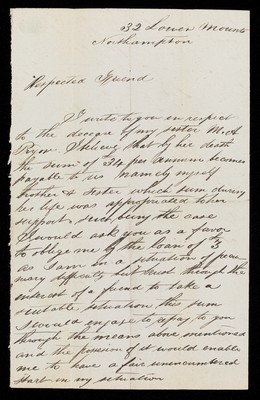 32 Lower Mount
Northampton
Respected Friend
I write to you in respect
to the decease of my sister M. A.
Pryor I believe that by her death
the sum of 34 per annum becomes
payable to us namely myself
brother & sister which sum during
her life was appropriated to her
support, such being the case
I would ask you as a favor
to oblige me by the loan of
as I am in a situation of pecu-
niary difficulty but trust through the
interest of a friend to take a
suitable situation this sum
I would engage to repay to you
through the means above mentioned
and the possession of it would enable
me to have a fair unencumbered
start in my situation